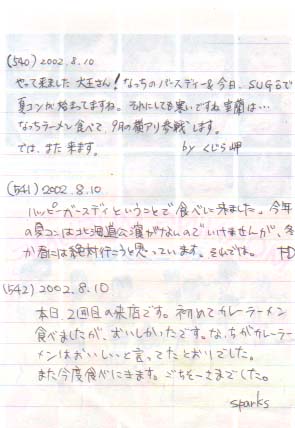 (540) 2002.8.10
やって来ました 大王さん！なっちのバースディー&今日、SUGるで
夏コンが始まってますね。それにしても寒いですね 室蘭は…
なっちラーメン食べて、9月の横アリ参戦します。
では、また来ます。 by くじら岬
(541) 2002.8.10
ハッピーバースディということで食べに来ました。今年
の夏コンは北海道公演がないのでいけませんが、冬
か春には絶対行こうと思っています。それでは。
(542) 2002.8.10
本日2回目の来店です。初めてカレーラーメン
食べましたが、おいしかったです。なっちがカレーラー
メンはおいしいと言ってたとおりでした。
また今度食べにきます。ごちそーさまでした。
sparks